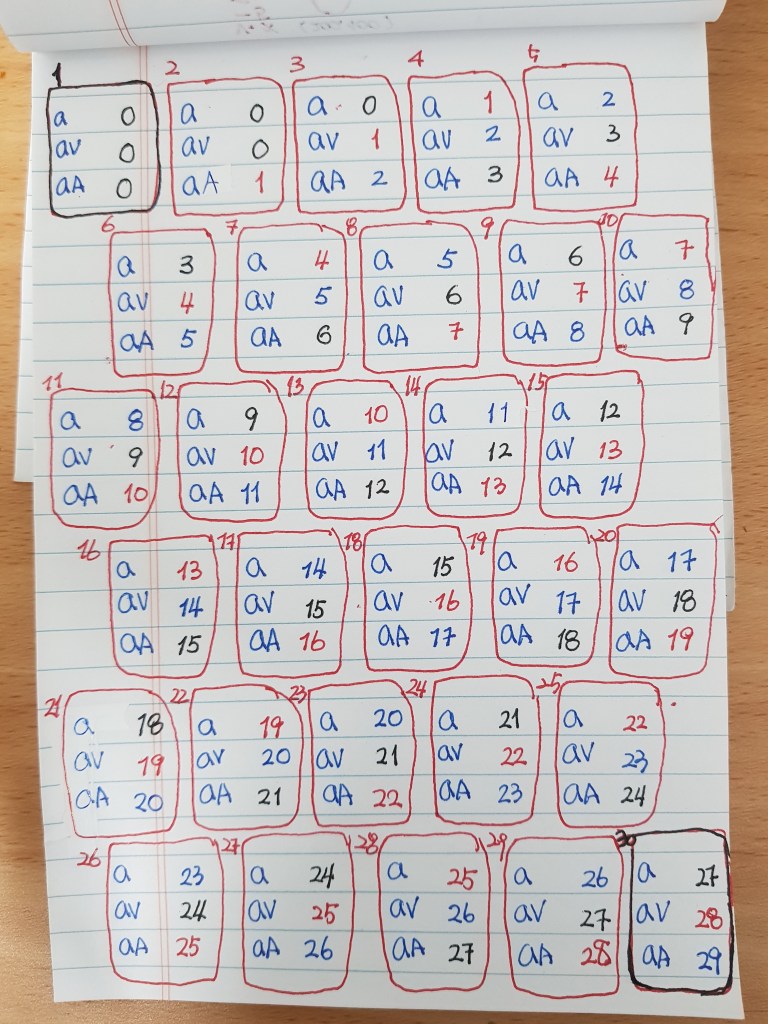 1 2 3 4 5
a 0 a 0 a 0 a 1 a 2
av 0 av 0 av 1 av 2 av 3
aA 0 aA 1 aA 2 aA 3 aA 4
6 7 8 9 10
a 3 a 4 a 5 a 6 a 7
av 4 av 5 av 6 av 7 av 8
aA 5 aA 6 aA 7 aA 8 aA 9
11 12 13 14 15
a 8 a 9 a 10 a 11 a 12
av 9 av 10 av 11 av 12 av 13
aA 10 aA 11 aA 12 aA 13 aA 14
16 17 18 19 20
a 13 a 14 a 15 a 16 a 17
av 14 av 15 av 16 av 17 av 18
aA 15 aA 16 aA 17 aA 18 aA 19
21 22 23 24 25
a 18 a 19 a 20 a 21 a 22
av 19 av 20 av 21 av 22 av 23
aA 20 aA 21 aA 22 aA 23 aA 24
26 27 28 29 30
a 23 a 24 a 25 a 26 a 27
av 24 av 25 av 26 av 27 av 28
aA 25 aA 26 aA 27 aA 28 aA 29